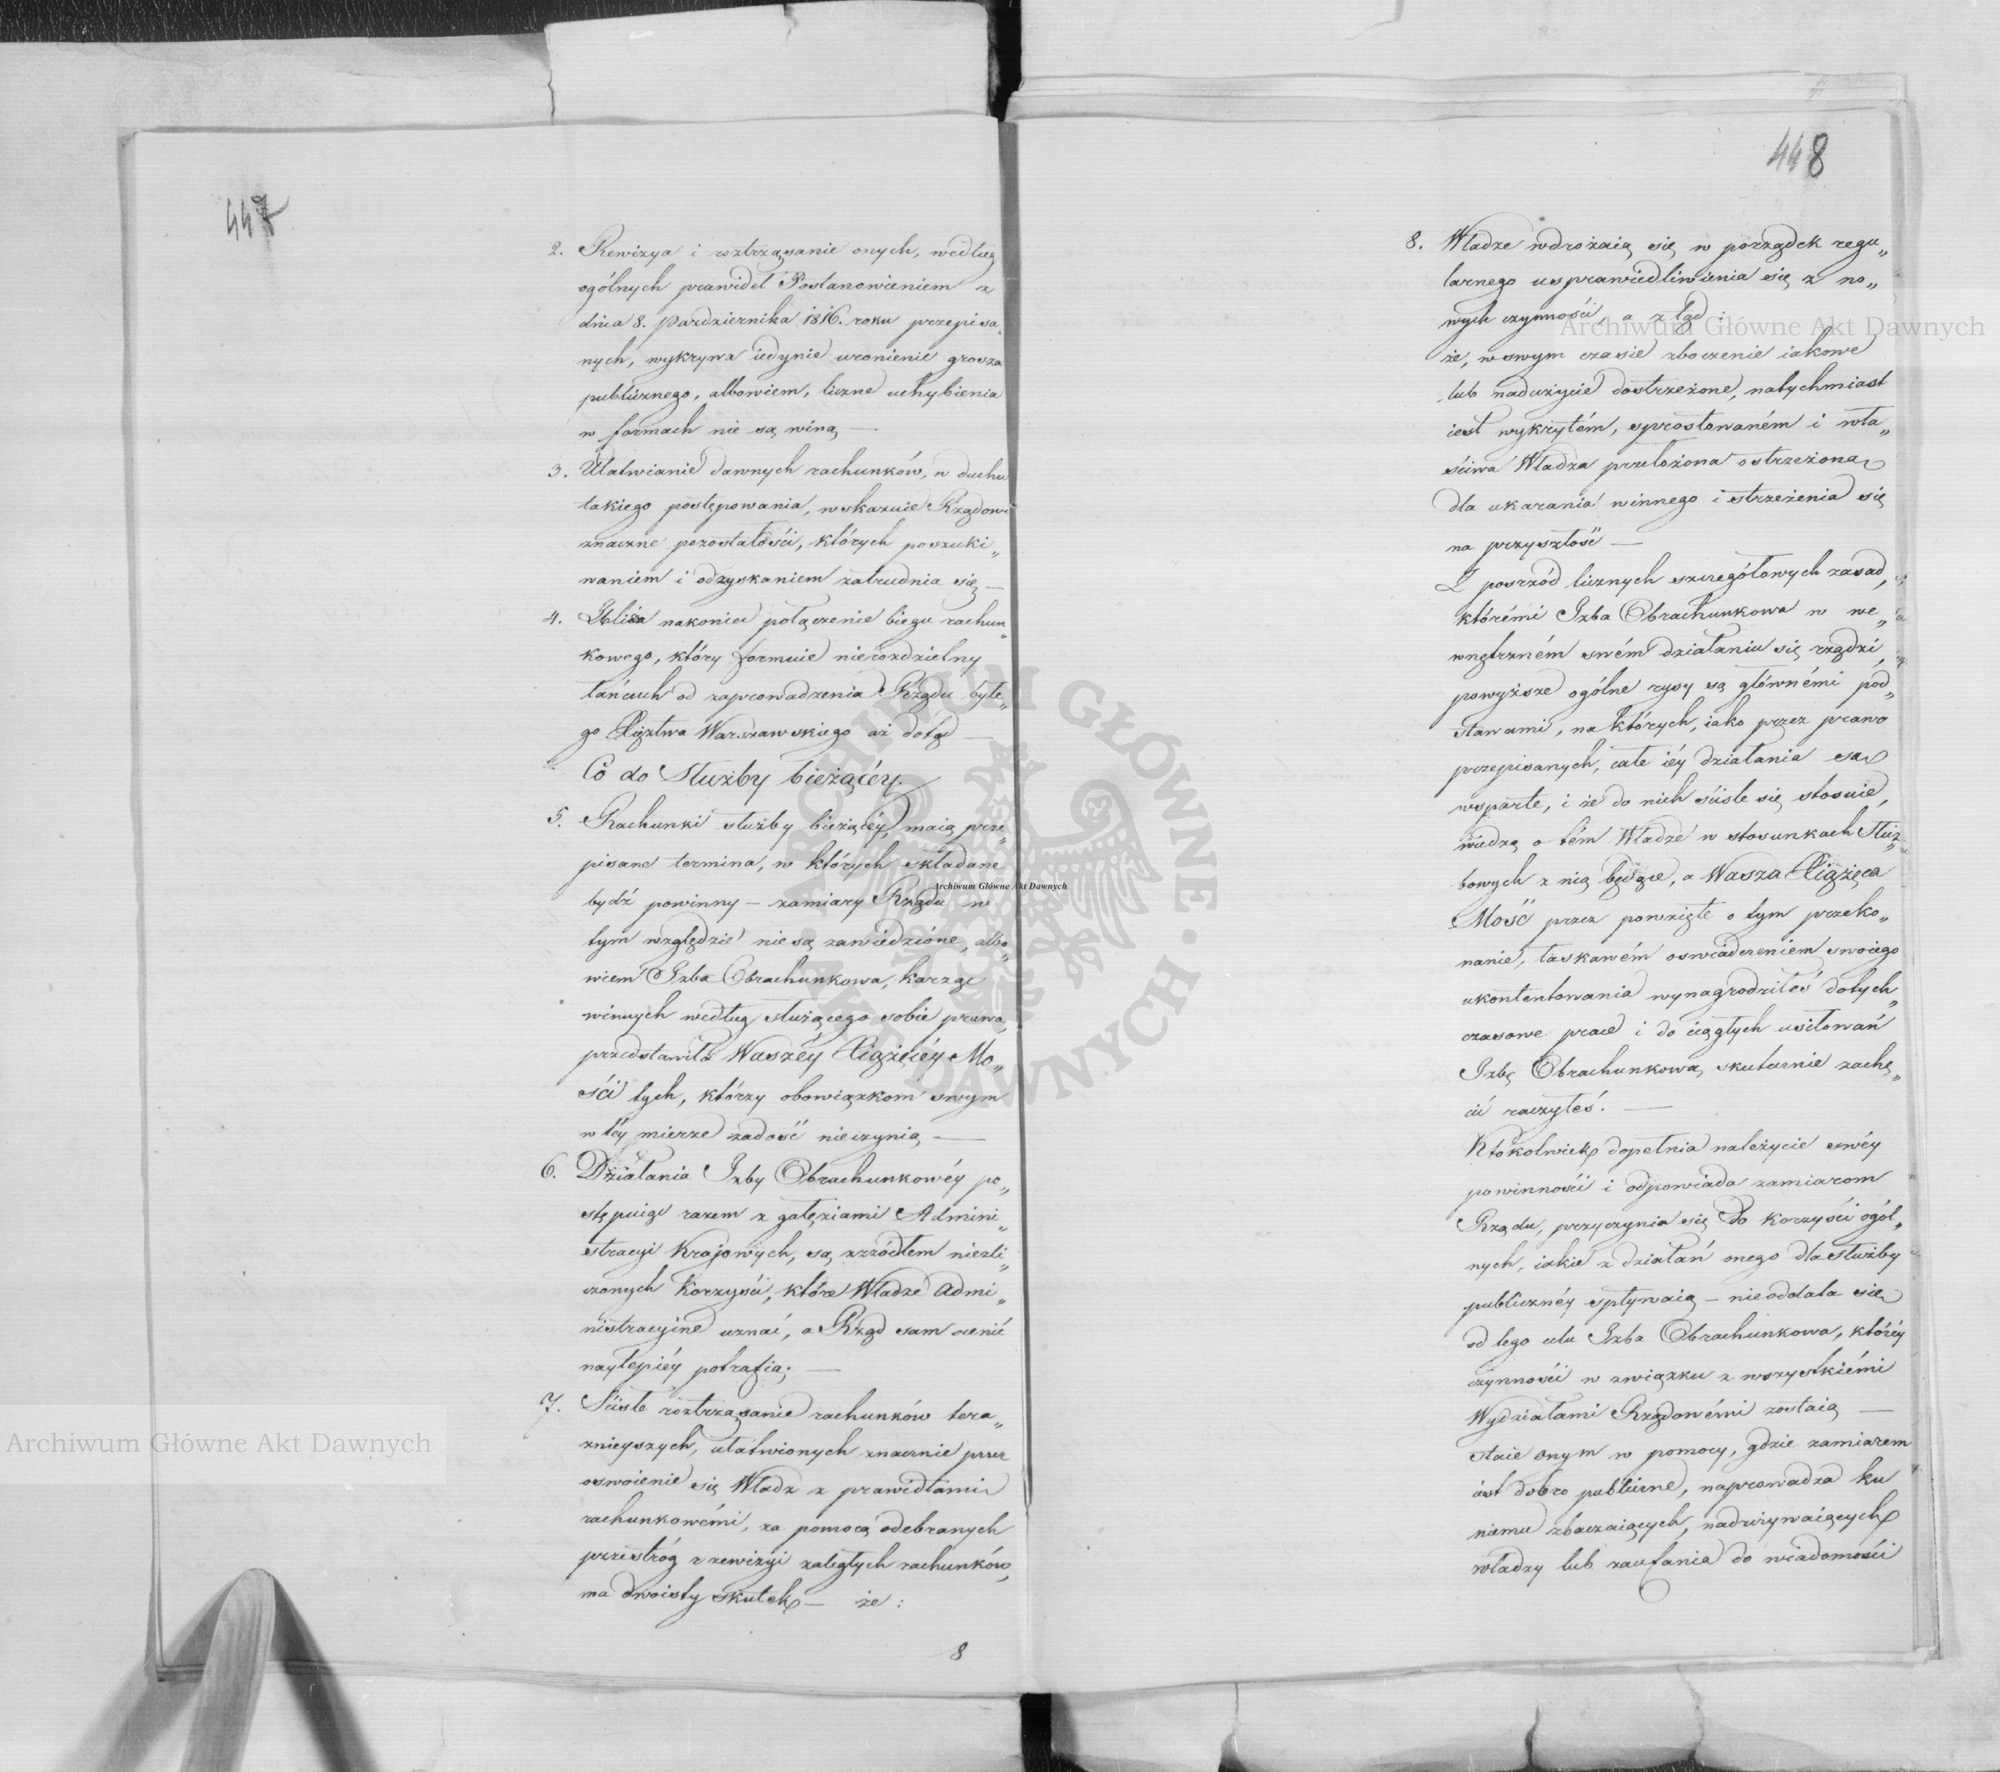 447
2. Rewizya i roztrząsanie onych, według
ogólnych prawideł Postanowieniem z
dnia 8. Października 1816. roku przepisa„
nych, wykrywa iedynie uronienie grosza
publicznego, albowiem, liczne uchybienia
w formach nie są winą —
3. Ułatwianie dawnych rachunków, w duchu
takiego postępowania, wskazuie Rządowi
znaczne pozostałości, których poszuki„
waniem i odzyskaniem zatrudnia się —
4. Zbliża nakoniec połączenie biegu rachun„
kowego, który formuie nierozdzielny
łańcuch od zaprowadzenia Rządu byłe„
go Xięztwa Warszawskiego aż dotąd —
Co do Służby bieżącéy.
5. Rachunki służby bieżącéy, maią prze„
pisane termina, w których składane
bydź powinny — zamiary Rządu w
tym względzie nie są zawiedzione, albo„
wiem Izba Obrachunkowa, karząc
winnych według służącego sobie prawa,
przedstawiła Waszéy Xiążęcéy Mo„
ści tych, którzy obowiązkom swym
w téy mierze zadość nieczynią —
6. Działania Izby Obrachunkowéy po„
stępuiąc razem z gałęziami Admini„
stracyi Krajowych, są źrzódłem niezli„
czonych Korzyści, które Władze Admi„
nistracyine uznać, a Rząd sam ocenić
naylepiéy potrafią; —
7. Ścisłe roztrząsanie rachunków tera„
znieyszych, ułatwionych znacznie przez
oswoienie się Władz z prawidłami
rachunkowémi, za pomocą odebranych
przestróg z rewizyi zaległych rachunków,
ma dwoisty skutek — że:
8
448
8. Władze wdrożaią się w porządek regu„
larnego usprawiedliwienia się z no„
wych czynności, a ztąd:
że, w swym czasie zboczenie iakowe
lub nadużycie dostrzeżone, natychmiast
iest wykrytém, sprostowaném i wła„
ściwa Władza przełożona ostrzeżona
dla ukarania winnego i strzeżenia się
na przyszłość —
Z pośrzód licznych szczegółowych zasad,
którémi Izba Obrachunkowa w we„
wnętrzném swém działaniu się rządzi,
powyższe ogólne rysy są głównémi pod„
stawami, na których, iako przez prawo
przepisanych, całe iéy działania są
wsparte, i że do nich ściśle się stosuie,
wiedzą o tém Władze w stosunkach Służ„
bowych z nią będące, a Wasza Xiążęca
Mość przez powzięte o tym przeko„
nanie, łaskawém oświadczeniem swoiego
ukontentowania wynagrodziłeś dotych„
czasowe prace i do ciągłych usiłowań
Izbę Obrachunkową, skutecznie zachę„
cić raczyłeś. —
Ktokolwiek dopełnia należycie swéy
powinności i odpowiada zamiarom
Rządu, przyczynia się do korzyści ogól„
nych, iakie z działań onego dla służby
publicznéy spływaią — nieoddala się
od tego celu Izba Obrachunkowa, któréy
czynności w związku z wszystkiémi
Wydziałami Rządowémi zostaią —
staie onym w pomocy, gdzie zamiarem
iest dobro publiczne, naprowadza ku
niemu zbaczaiących, nadużywaiących
władzy lub zaufania do wiadomości
Archiwum Główne Akt Dawnych
Archiwum Główne Akt Dawnych
Archiwum Główne Akt Dawnych
ARCHIWUM GŁÓWNE AKT DAWNYCH